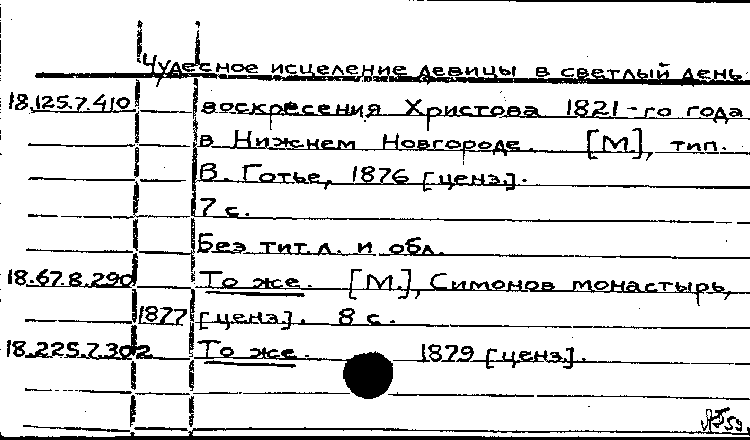 Чудесное исцеление девицы в светлый день
18.125.7.410 воскресения Христова 1821-го года
в Нижнем Новгороде. [М], тип.
В. Готье, 1876 [ценз.].
7 с.
Без тит.л. и обл.
18.67.8.290 То же. [М.], Симонов монастырь,
1877 [ценз]. 8 с.
18.225.7.302 То же. 1879 [ценз].